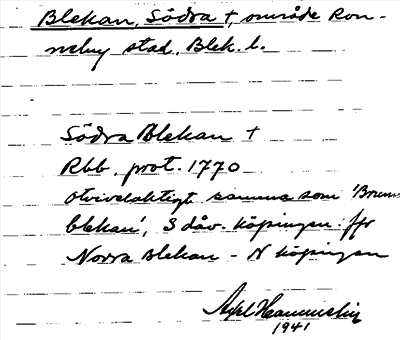 Blekan, Södra †, område Ron-
neby stad. Blek. l.
Södra Blekan †
Rbb. prot. 1770
otvivelaktigt samma som 'Brunns
blekan', S dåv. köpingen. jfr
Norra Blekan – N köpingen
Axel Hammelin
1941